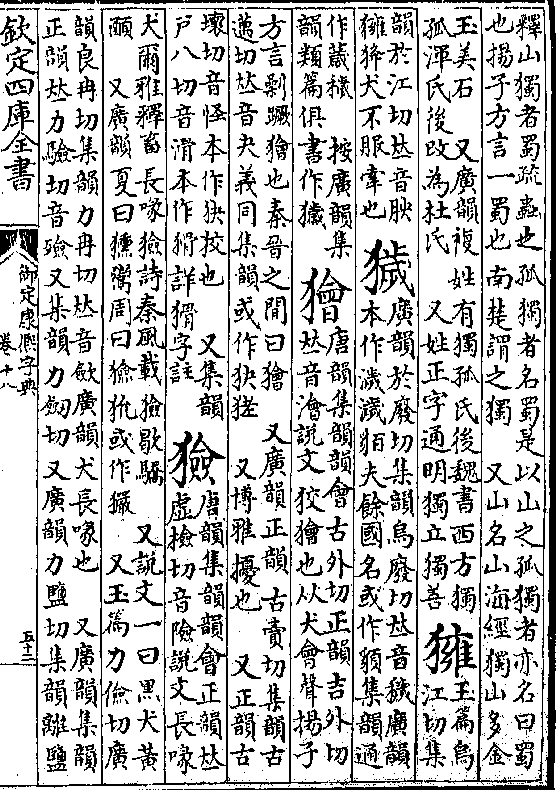 釋山獨者蜀疏蟲也孤獨者名蜀是以山之孤獨者亦名曰蜀
也揚子方言一蜀也南楚謂之獨 又山名山海經獨山多金
玉美石 又廣韻複姓有獨孤氏後魏書西方獨
孤渾氏後改為杜氏 又姓正字通明獨立獨善
㺋
玉篇烏
江切集
韻於江切𠀤音胦
㺋犬不服牽也
獩
廣韻於廢切集韻烏廢切𠀤音穢廣韻
本作濊濊貊夫餘國名或作集韻通
作薉穢 按廣韻集
韻類篇俱書作獩
獪
唐韻集韻韻會古外切正韻吉外切
𠀤音澮說文狡獪也从犬會聲揚子
方言剿蹶獪也秦晉之間曰獪 又廣韻正韻古賣切集韻古
邁切𠀤音夬義同集韻或作 又博雅擾也 又正韻古
壞切音怪本作狡也 又集韻
戸八切音滑本作猾詳猾字註
獫
唐韻集韻韻會正韻𠀤
虛檢切音險說文長喙
犬爾雅釋畜長喙獫詩秦風載獫歇驕 又說文一曰黑犬黃
頤 又廣韻夏曰獯鬻周曰獫狁或作玁 又玉篇力儉切廣
韻良冉切集韻力冉切𠀤音斂廣韻犬長喙也 又廣韻集韻
正韻𠀤力驗切音殮又集韻力劒切 又廣韻力鹽切集韻離鹽
欽定四庫全書
御定康熙字典
卷十八
五十二